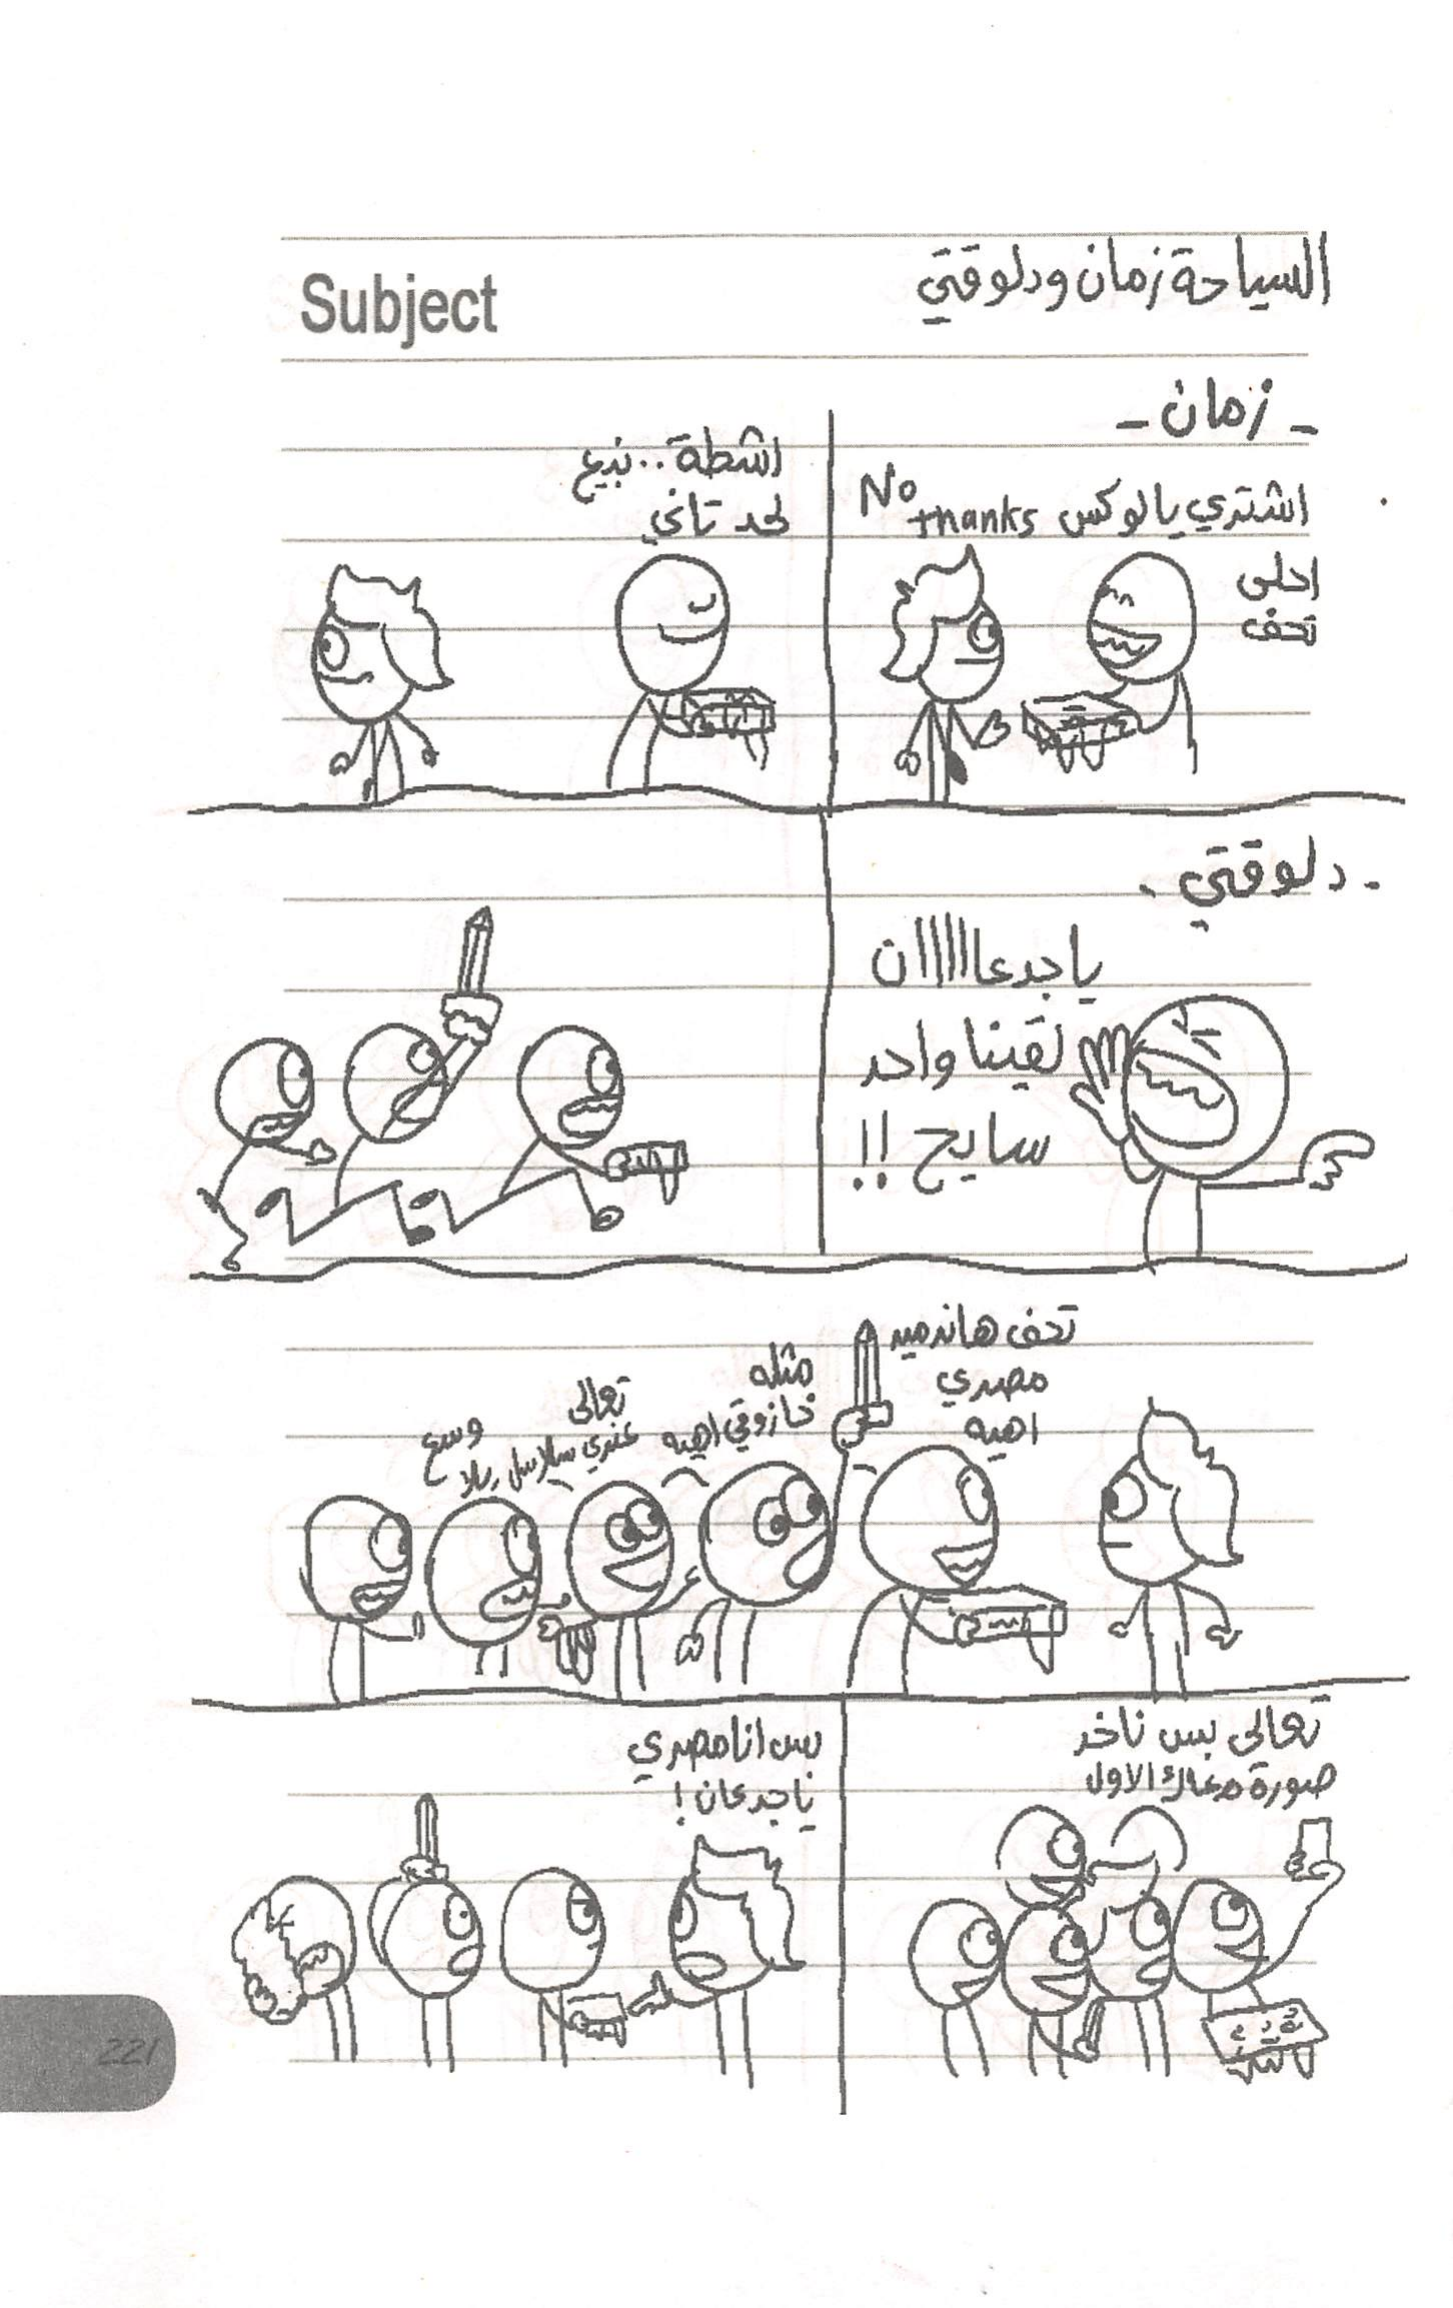 Subject
السياحة زمان ودلوقتي
- زمان -
اشتري يا لوكس
احلى
تحف
No
thanks
اشطة.. نبيع
لحد تاني
- دلوقتي -
ياجدعاااااان
لقينا واحد
سايح !!
تحف هاندميد
مصري
اهيه
مثله
خازوقي اهيه
تعالى
عندي سلاسل بلا
وسع
تعالى بس ناخد
صورة معاك الاول
بس انا مصري
ياجدعان !
221